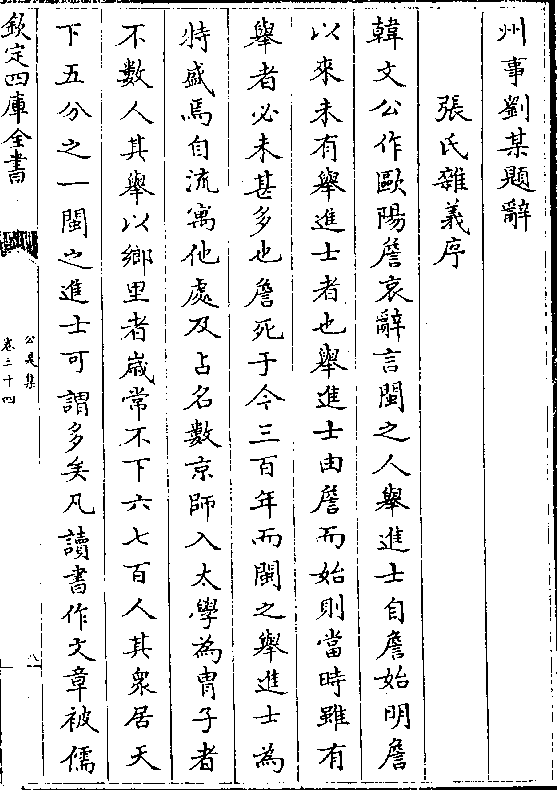 州事劉某題辭
張氏雜義序
韓文公作歐陽詹哀辭言閩之人舉進士自詹始明詹
以來未有舉進士者也舉進士由詹而始則當時雖有
舉者必未甚多也詹死于今三百年而閩之舉進士為
特盛焉自流寓他處及占名數京師入太學為胄子者
不數人其舉以鄉里者嵗常不下六七百人其衆居天
下五分之一閩之進士可謂多矣凡讀書作文章被儒
欽定四庫全書
公是集
卷三十四
八